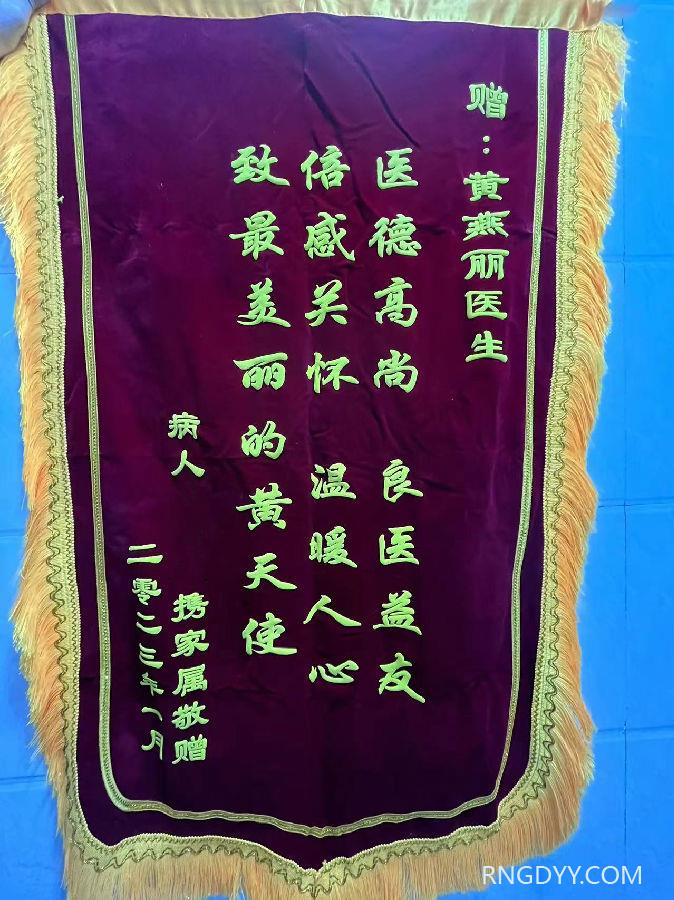 赠：黄燕丽医生
医德高尚 良医益友
倍感关怀 温暖人心
致最美丽的黄天使
病人 携家属敬赠
二零二三年一月
RNGDYY.COM